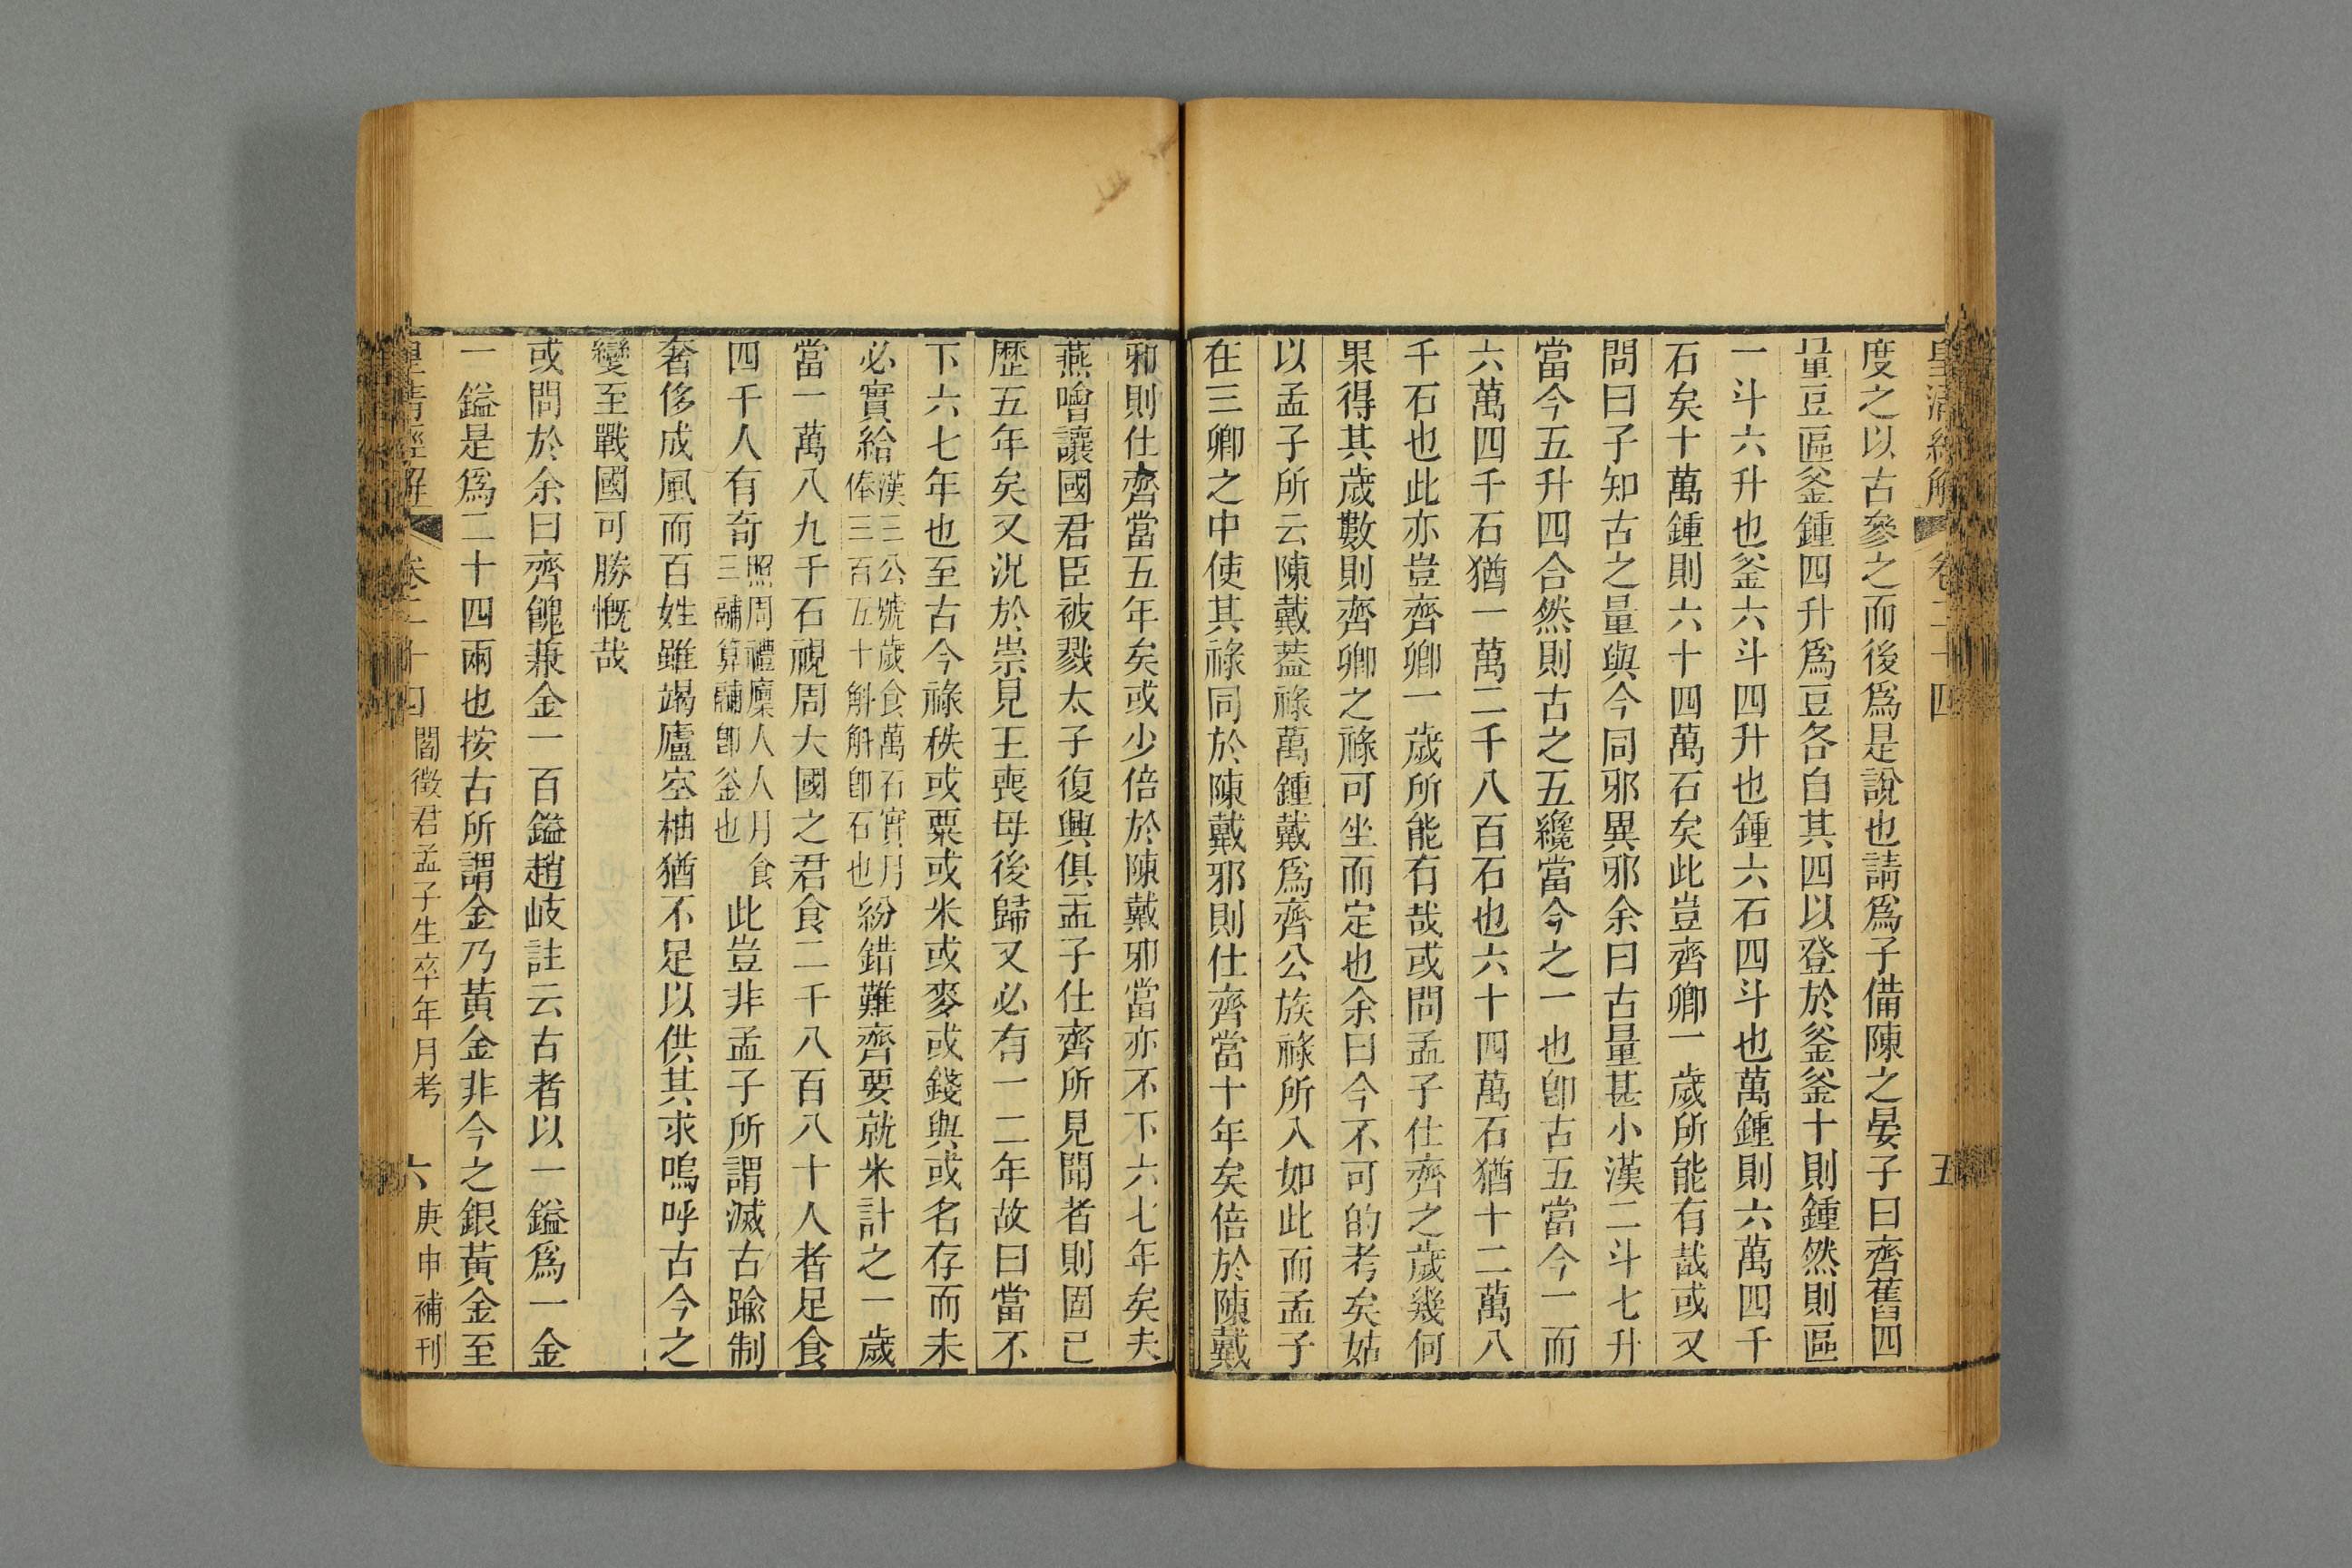 皇清經解 卷二十四 五
度之以古參之而後爲是說也請爲子備陳之晏子曰齊舊四
量豆區釜鍾四升爲豆各自其四以登於釜釜十則鍾然則區
一斗六升也釜六斗四升也鍾六石四斗也萬鍾則六萬四千
石矣十萬鍾則六十四萬石矣此豈齊卿一歲所能有哉或又
問曰子知古之量與今同邪異邪余曰古量甚小漢二斗七升
當今五升四合然則古之五纔當今之一也卽古五當今一而
六萬四千石猶一萬二千八百石也六十四萬石猶十二萬八
千石也此亦豈齊卿一歲所能有哉或問孟子仕齊之歲幾何
果得其歲數則齊卿之祿可坐而定也余曰今不可的考矣姑
以孟子所云陳戴葢祿萬鍾戴爲齊公族祿所入如此而孟子
在三卿之中使其祿同於陳戴邪則仕齊當十年矣倍於陳戴
邪則仕齊當五年矣或少倍於陳戴邪當亦不下六七年矣夫
燕噲讓國君臣被戮太子復興俱孟子仕齊所見聞者則固已
歷五年矣又況於崇見王喪母後歸又必有一二年故曰當不
下六七年也至古今祿秩或粟或米或麥或錢與或名存而未
必實給漢三公號歲食萬石實月俸三百五十斛斛卽石也紛錯難齊要就米計之一歲
當一萬八九千石視周大國之君食二千八百八十人者足食
四千人有奇照周禮廩人人月食三鬴算鬴卽釜也此豈非孟子所謂滅古踰制
奢侈成風而百姓雖竭廬空柚猶不足以供其求嗚呼古今之
變至戰國可勝慨哉
或問於余曰齊餽兼金一百鎰趙岐註云古者以一鎰爲一金
一鎰是爲二十四兩也按古所謂金乃黃金非今之銀黃金至
皇清經解 卷二十四 閻徵君孟子生卒年月考 六 庚申補刊